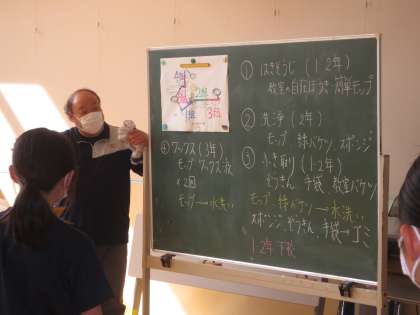 4年
2年
1年
3年
④ワックス(3年)
モップ ワックス液
×2回
モップ→水洗い
①はきそうじ(1・2年)
教室の自在ぼうき・簡単モップ
②洗浄(2年)
モップ 特バケツ スポンジ
③ふき取り(1・2年)
ぞうきん 手袋 教室バケツ
モップ、特バケツ→水洗い
スポンジ、ぞうきん、手袋→ゴミ
1・2年下校